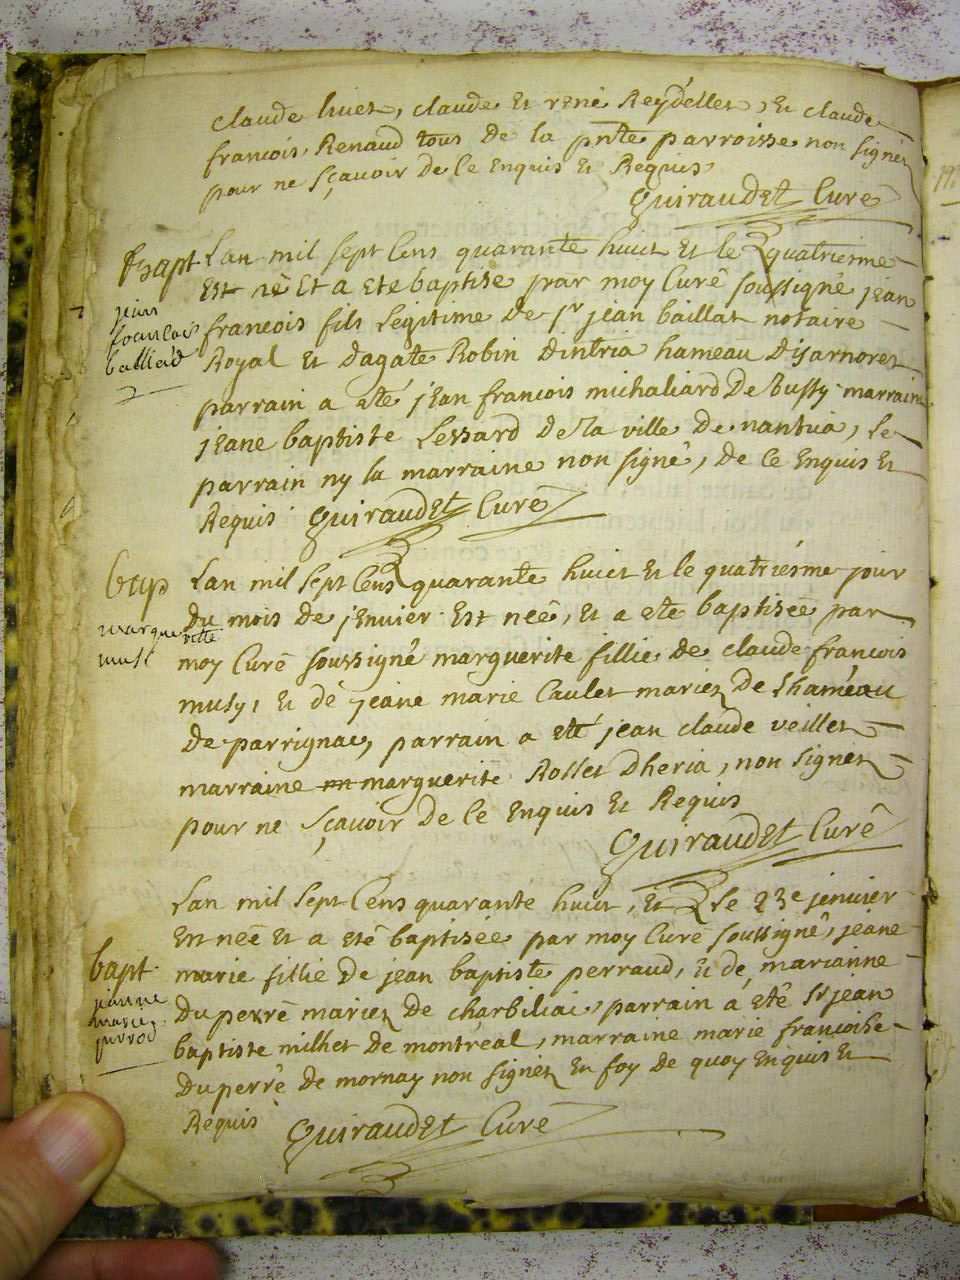 claude huet, claude Et rené Reydellet, Et claude
francois Renaud tous de la pnte parroisse non signéz
pour ne sçavoir de ce Enquis Et Requis
Guiraudet Curé
Bapt
Lan mil sept Cens quarante huict Et le quatriesme
Est né Et a eté baptisé par moy Curé soussigné jean
jean
francois
francois fils Legitime de sr jean baillat notaire
Royal Et dagate Robin dintria hameau disarnorez
parrain a eté jean francois michaliard De Bussy marraine
jeane baptiste Lessard de la ville de nantua, Le
parrain ny la marraine non signé, de ce Enquis Et
Requis Guiraudet Curé
Bap
Lan mil sept Cens quarante huict Et le quatriésme jour
du mois de jenvier Est néé, Et a eté baptiséé par
margueritte
musi
moy Curé soussigné marguerite fillie de claude francois
musy, Et de jeane marie Caulet mariez De Lhaméau
De parrignac, parrain a eté jean claude veillet
marraine marguerite Rosset Dheria, non signez
pour ne sçavoir de ce Enquis Et Requis
Guiraudet Curé
Lan mil sept Cens quarante huict, Et Le 23e jenvier
Est néé Et a eté baptiséé par moy Curé soussigné, jeane
bapt
marie fillie de jean baptiste perraud, Et de marianne
jeanne
marie
duperré mariez de charbiliac, parrain a eté Sr jean
baptiste milhet de montreal, marraine marie francoise
duperré de mornay non signez En foy de quoy Enquis Et
Requis Guiraudet Curé